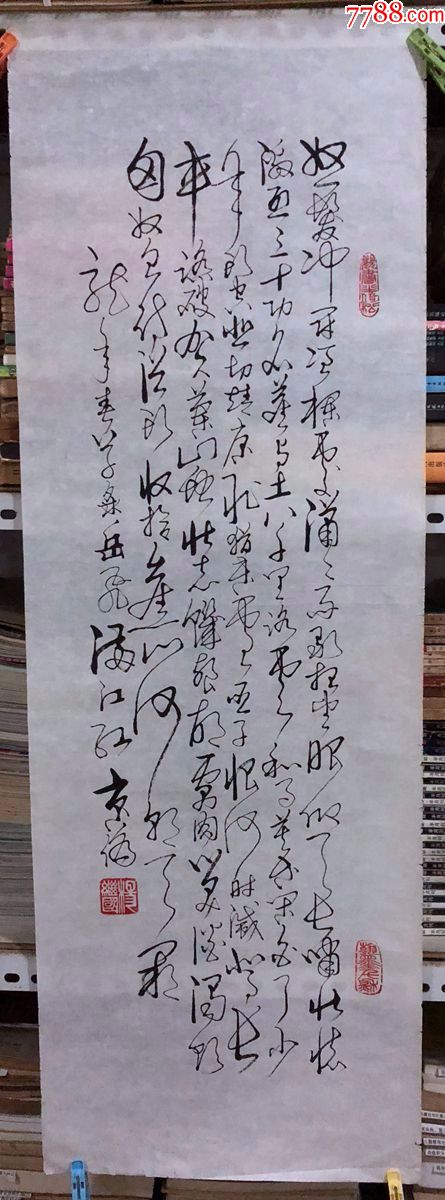 7788.com
怒发冲冠凭栏处潇潇雨歇抬望眼仰天长啸壮怀
激烈三十功名尘与土八千里路云和月莫等闲白了少
年头空悲切靖康耻犹未雪臣子恨何时灭驾长
车踏破贺兰山缺壮志饥餐胡虏肉笑谈渴饮
匈奴血待从头收拾旧山河朝天阙
龙年春 岳飞满江红